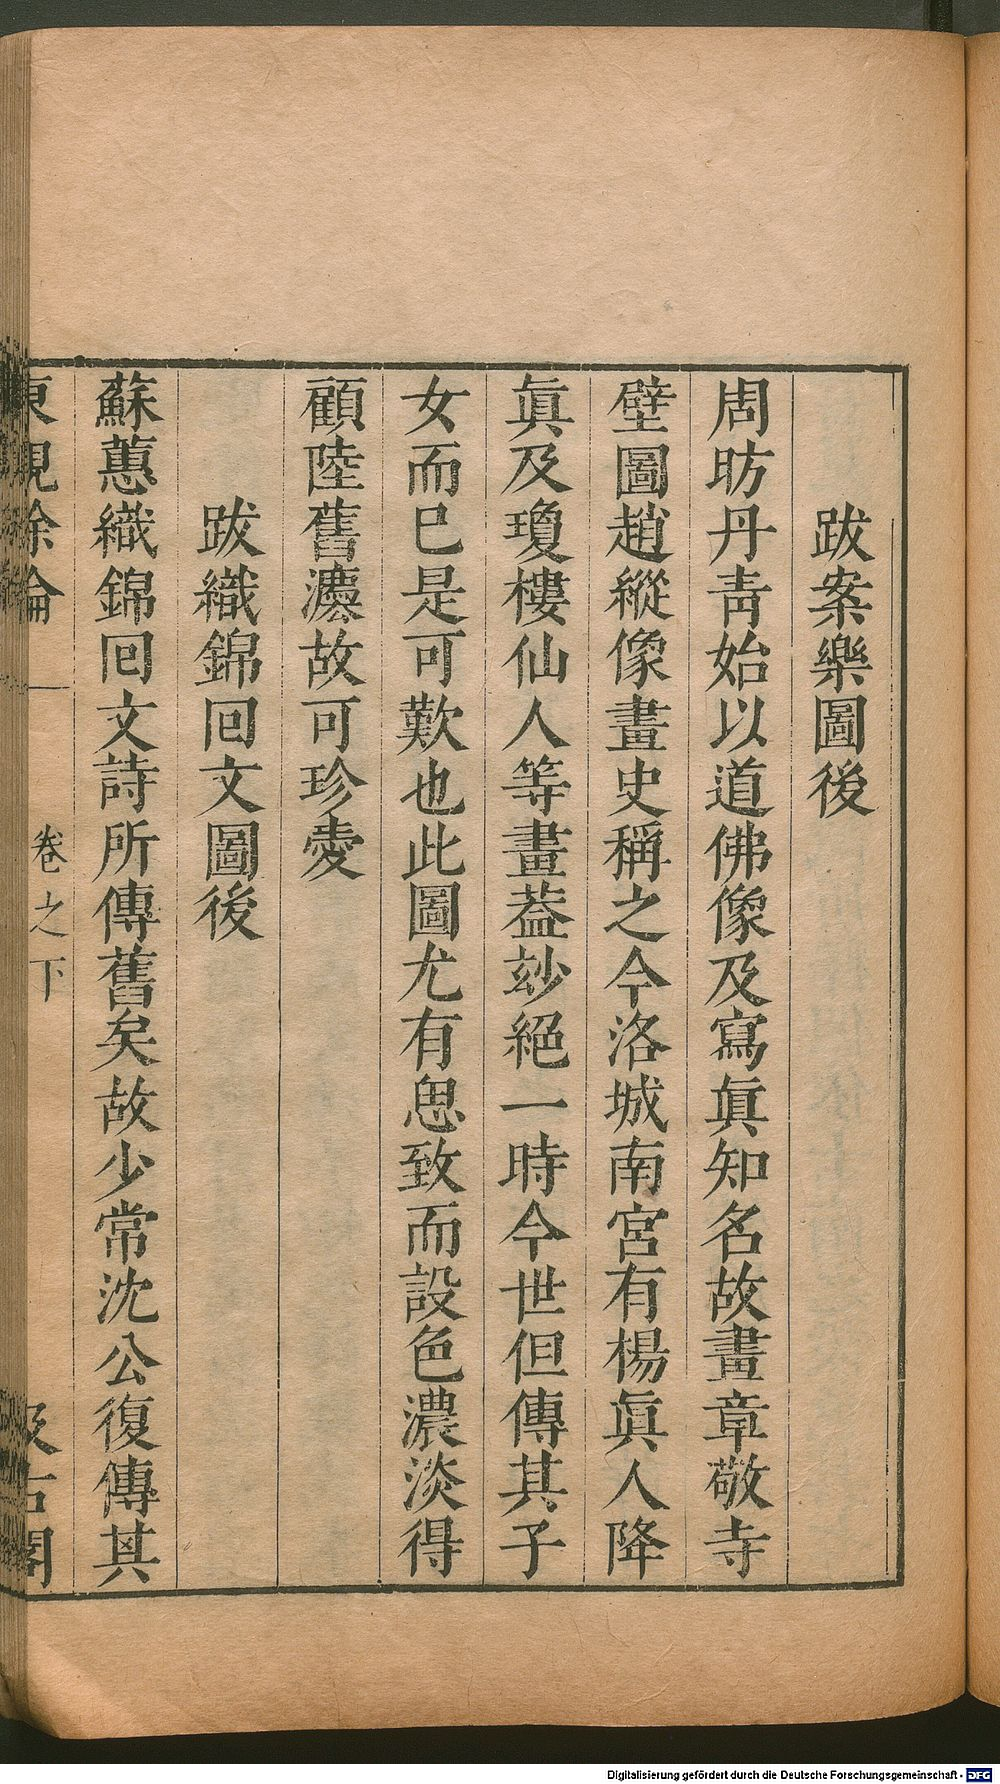 跋案樂圖後
周昉丹靑始以道佛像及寫眞知名故畫章敬寺
壁圖趙縱像畫史稱之今洛城南宮有楊眞人降
眞及瓊樓仙人等畫葢玅絕一時今世但傳其子
女而巳是可歎也此圖尤有思致而設色濃淡得
顧陸舊灋故可珍愛
跋織錦回文圖後
蘇蕙織錦回文詩所傳舊矣故少常沈公復傳其
東觀餘論
卷之下
汲古閣
Digitalisierung gefördert durch die Deutsche Forschungsgemeinschaft - DFG